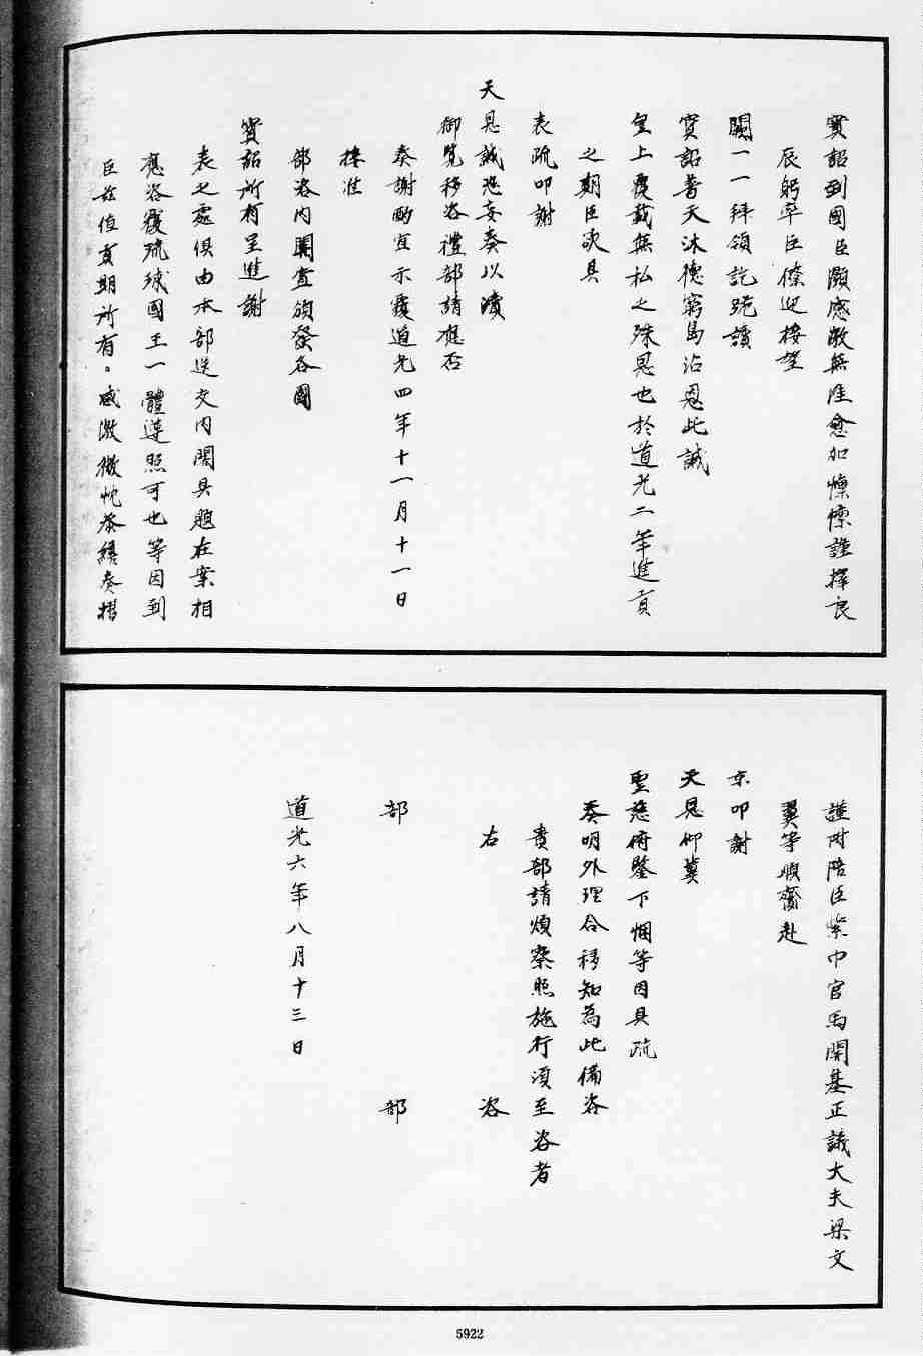 寶詔到國臣灝感激無涯愈加懍懍謹擇良
辰躬率臣僚迎接望
闕一一拜領訖跪讀
寶詔普天沐德窮島沾恩此誠
皇上覆載無私之殊恩也於道光二年進貢
之期臣敬具
表疏叩謝
天恩誠恐妄奏以瀆
御覽移咨禮部請應否
奏謝酌宜示覆道光四年十一月十一日
接准
部咨內開查頒發各國
寶詔所有呈進謝
表之處俱由本部送交內閣具題在案相
應咨覆琉球國王一體遵照可也等因到
臣茲值貢期所有感激微忱恭繕奏摺
謹附陪臣紫巾官馬開基正議大夫梁文
翼等順齎赴
京叩謝
天恩仰冀
聖慈俯鑒下悃等因具疏
奏明外理合移知為此備咨
貴部請煩察照施行須至咨者
右 咨
部 部
道光六年八月十三日
5922